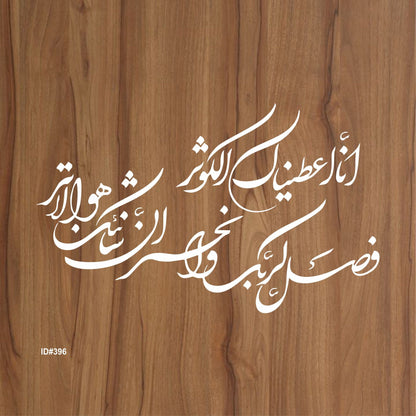 انّا اعطیناک الکوثر
فصلّ لربّک وانحر انّ شانئک هو الابتر
ID#396